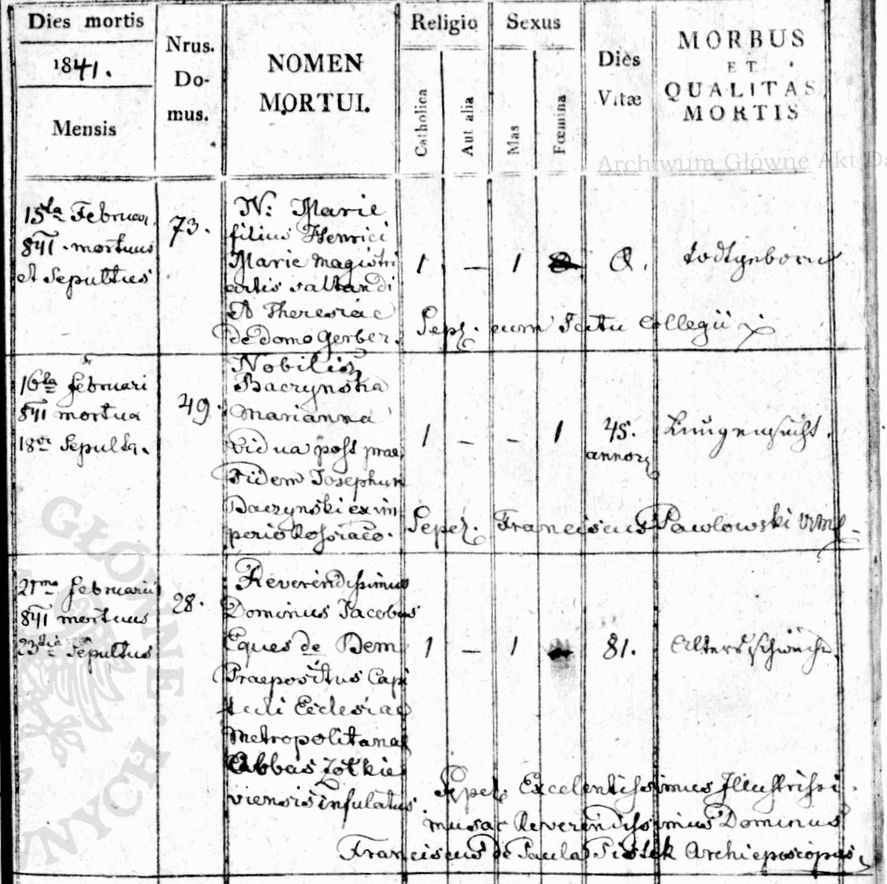 Dies mortis
1841.
Mensis
Nrus.
Do-
mus.
NOMEN
MORTUI.
Religio
Catholica
Aut alia
Sexus
Mas
Fœmina
Dies
Vitæ
MORBUS
ET
QUALITAS
MORTIS
Archiwum Główne Akt Da
15ta Februar
841 mortuus
et Sepultus
73.
N: Marie
filius Henrici
Marie magistri
artis saltandi
et Theresiae
de domo Gerber.
1 — 1
0.
todtgeborn
Sepel. cum Scitu Collegii
16ta februari
841 mortua
18va Sepulta.
49.
Nobilis
Baczynska
Marianna
vidua post prae
fidem Josephum
Baczynski ex im
perio Rossiaco.
1 — — 1
45.
annor
Lungensucht.
Sepel. Franciscus Pawlowski
21ma februarii
841 mortuus
23tia Sepultus
28.
Reverendissimus
Dominus Jacobus
Eques de Bem
Praepositus Capi
tuli Ecclesiae
Metropolitanae
Abbas Zolkie
viensis infulatus
1 — 1
81.
Altersschwäche.
Sepel. Excelentissimus Illustrissi
mus ac Reverendissimus Dominus
Franciscus de Paula Pistek Archiepiscopus
GŁÓWNE
WNYCH